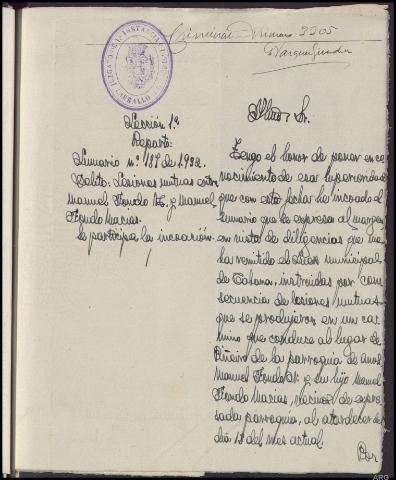 JUZGADO DE 1ª INSTANCIA
CARBALLO
Criminal Número 2205
Sección 1ª
Sumario nº 187 de 1932.
Delito: Lesiones mutuas entre
Manuel Fondo y Manuel
Fondo Macias.
Se participa la incoación.
Iltmo. Sr.
Tengo el honor de poner en co
nocimiento de esa superioridad
que con esta fecha he incoado el
sumario que se expresa al margen
en vista de diligencias que me
ha remitido el Juez municipal
de Cabana, instruidas por con
secuencia de lesiones mutuas
que se produjeron en un ca
mino que conduce al lugar de
Piñeiro de la parroquia de Anos
Manuel Fondo y su hijo Manuel
Fondo Macias, vecinos de expre
sada parroquia, al atardecer del
día 12 del mes actual.
Por
ARG